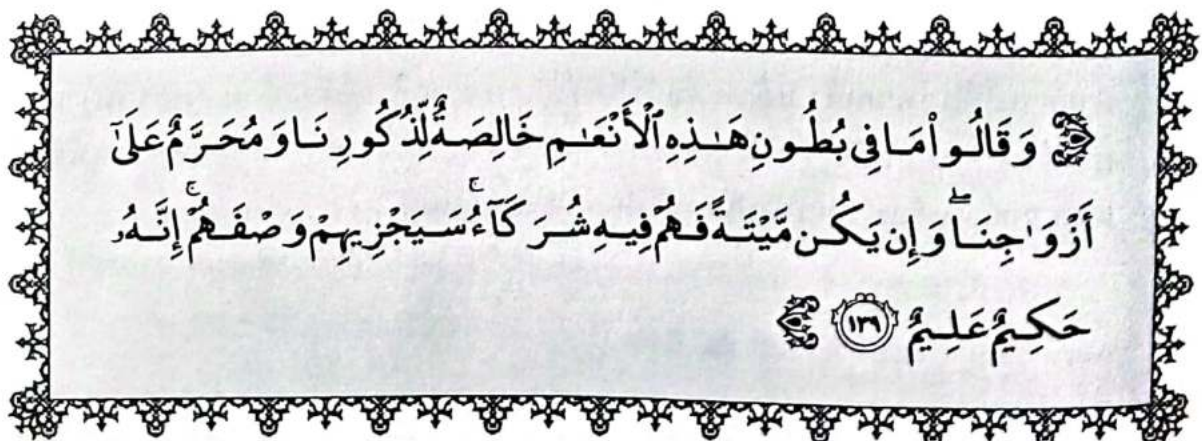 ﴿ وَقَالُوا۟ مَا فِى بُطُونِ هَـٰذِهِ ٱلْأَنْعَـٰمِ خَالِصَةٌ لِّذُكُورِنَا وَمُحَرَّمٌ عَلَىٰٓ
أَزْوَٰجِنَا ۖ وَإِن يَكُن مَّيْتَةً فَهُمْ فِيهِ شُرَكَآءُ ۚ سَيَجْزِيهِمْ وَصْفَهُمْ ۚ إِنَّهُۥ
حَكِيمٌ عَلِيمٌ ١٣٩ ﴾